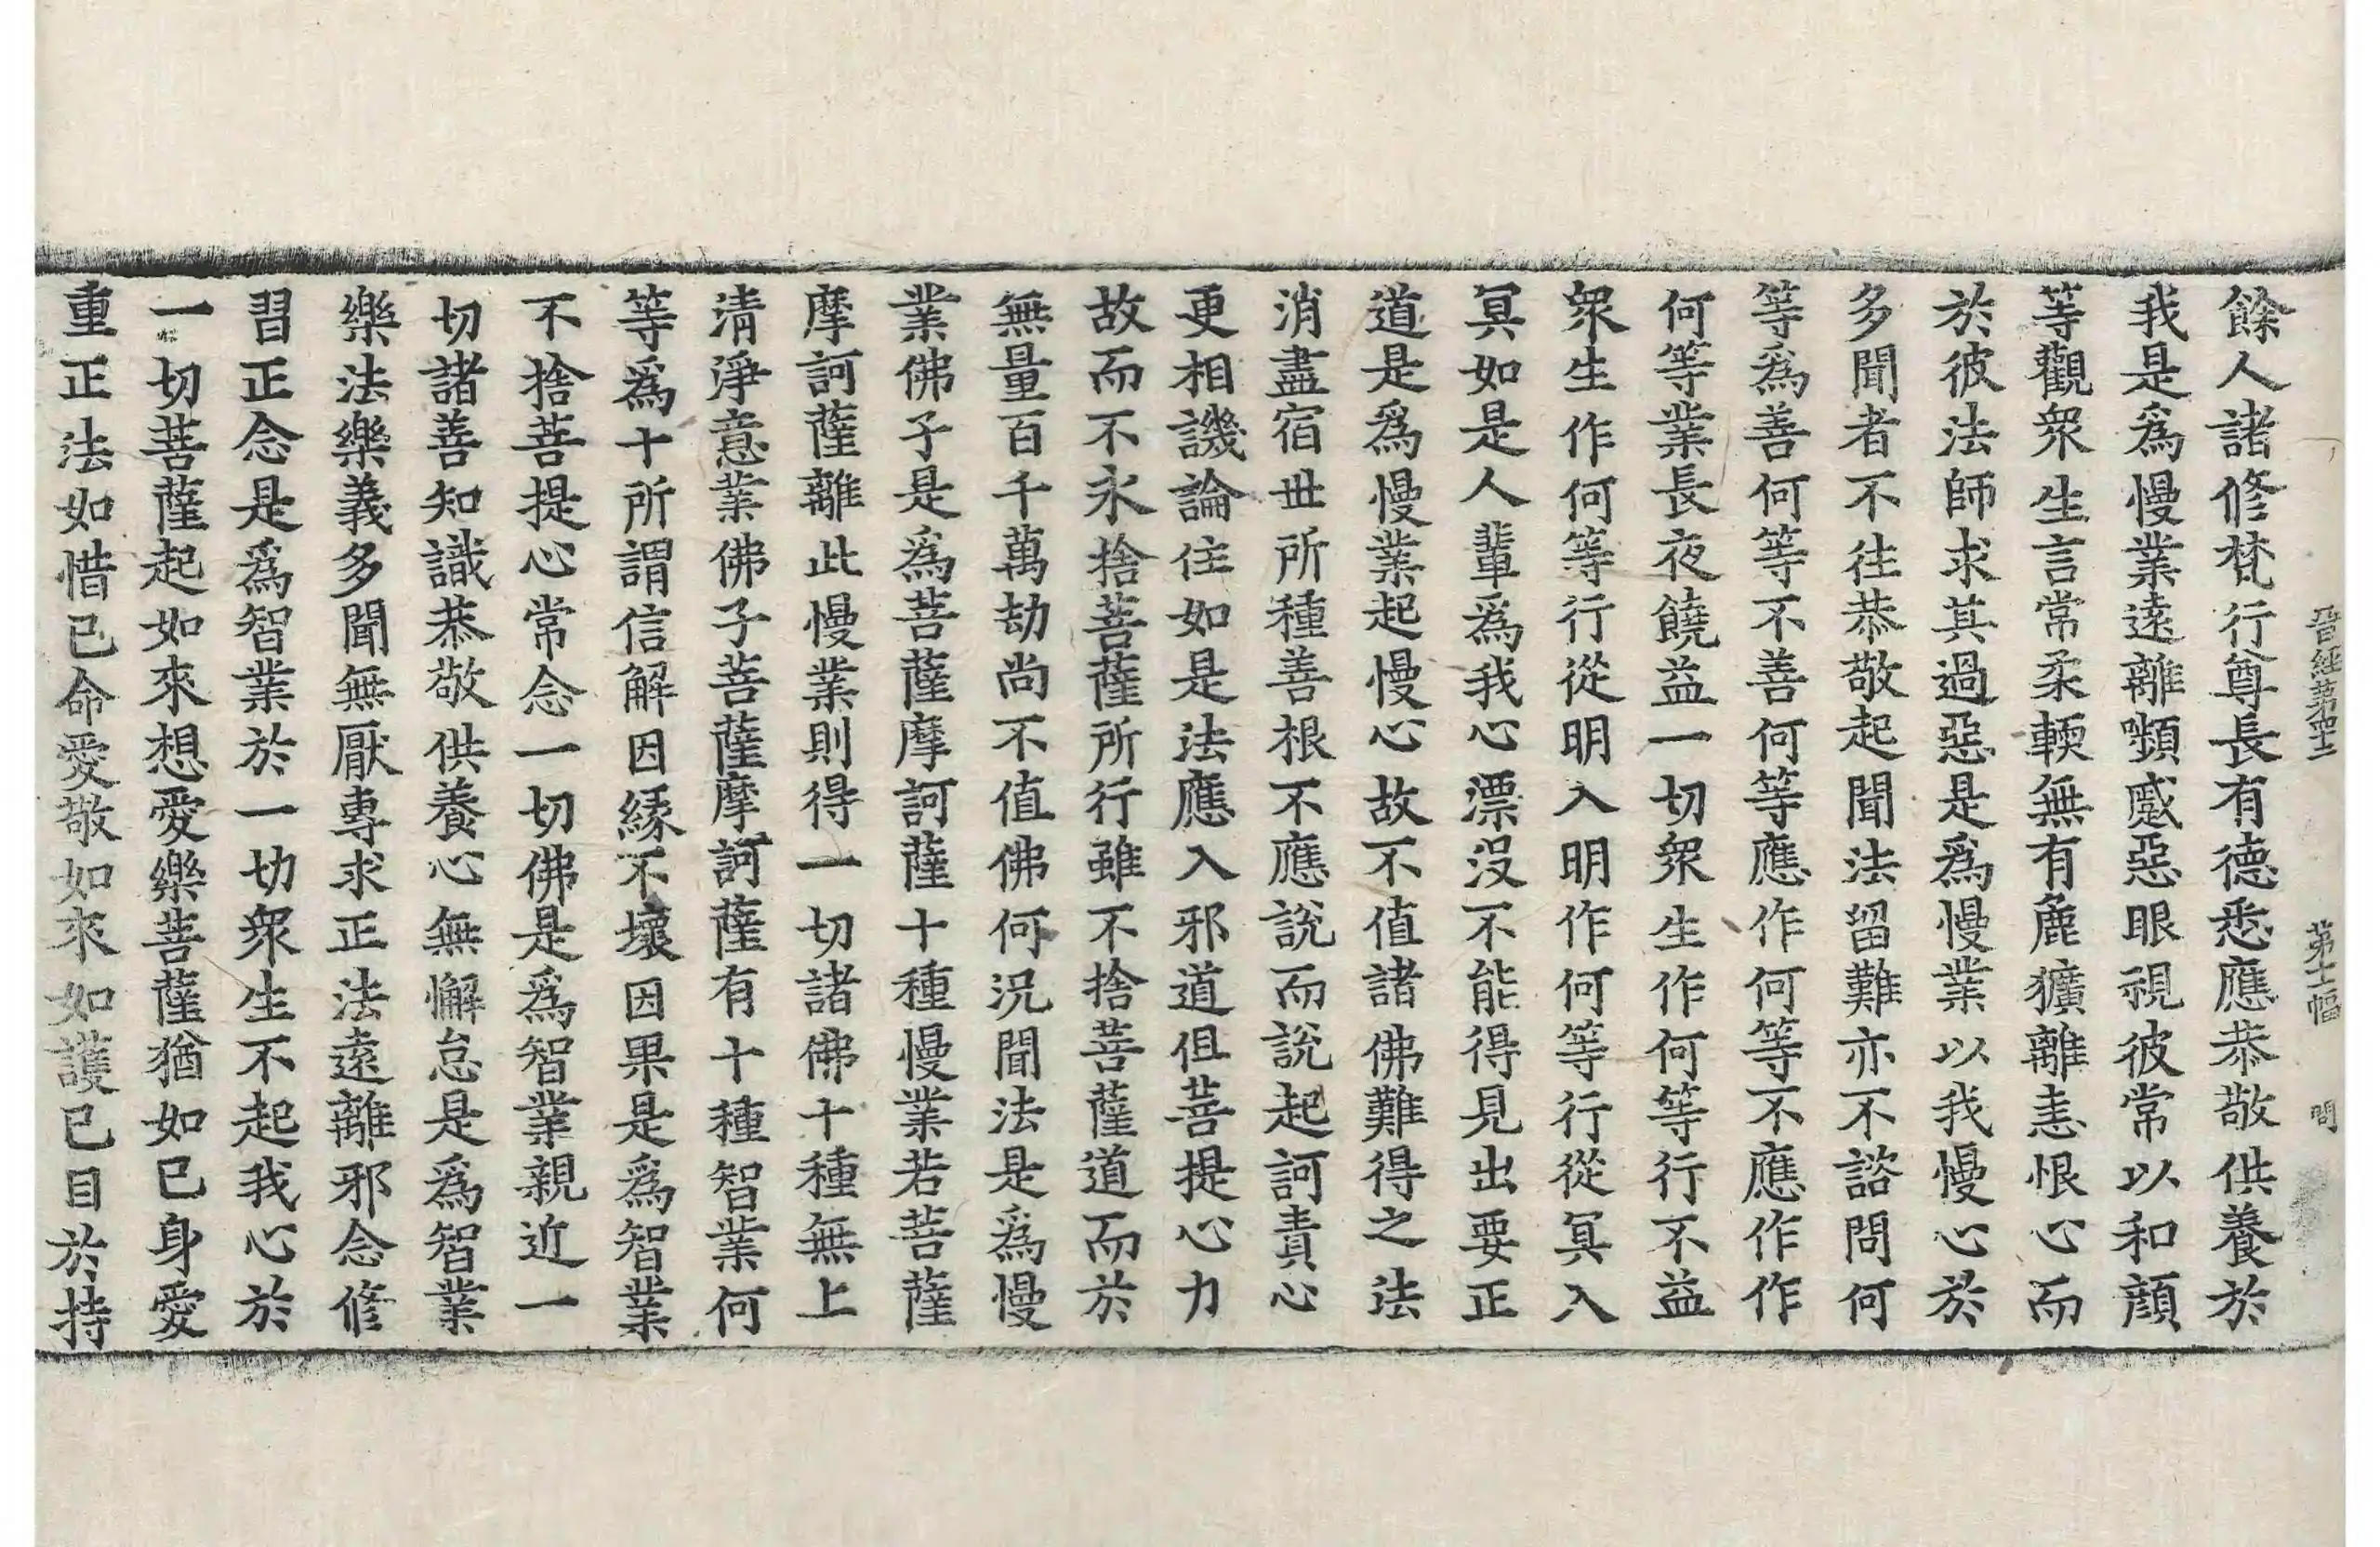 晉經第四十二　第十二幅　問
餘人諸修梵行尊長有德悉應恭敬供養於
我是爲慢業遠離嚬蹙惡眼視彼常以和顔
等觀衆生言常柔輭無有麁獷離恚恨心而
於彼法師求其過惡是爲慢業以我慢心於
多聞者不往恭敬起聞法留難亦不諮問何
等爲善何等不善何等應作何等不應作作
何等業長夜饒益一切衆生作何等行不益
衆生作何等行從明入明作何等行從冥入
冥如是人輩爲我心漂沒不能得見出要正
道是爲慢業起慢心故不值諸佛難得之法
消盡宿世所種善根不應說而說起訶責心
更相譏論住如是法應入邪道但菩提心力
故而不永捨菩薩所行雖不捨菩薩道而於
無量百千萬劫尚不值佛何況聞法是爲慢
業佛子是爲菩薩摩訶薩十種慢業若菩薩
摩訶薩離此慢業則得一切諸佛十種無上
清淨意業佛子菩薩摩訶薩有十種智業何
等爲十所謂信解因緣不壞因果是爲智業
不捨菩提心常念一切佛是爲智業親近一
切諸善知識恭敬供養心無懈怠是爲智業
樂法樂義多聞無厭專求正法遠離邪念修
習正念是爲智業於一切衆生不起我心於
一切菩薩起如來想愛樂菩薩猶如已身愛
重正法如惜已命愛敬如來如護已目於持